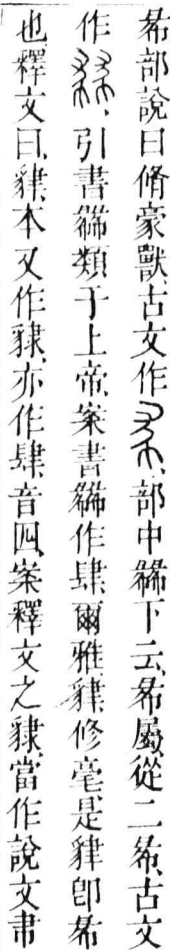 㣇部說曰脩豪獸古文作𢑓部中䊹下云㣇屬從二㣇古文
作𧰲引書䊹類于上帝案書䊹作肆爾雅貄修毫是貄即㣇
也釋文曰貄本又作𧳙亦作肆音四案釋文之𧳙當作說文𢑱